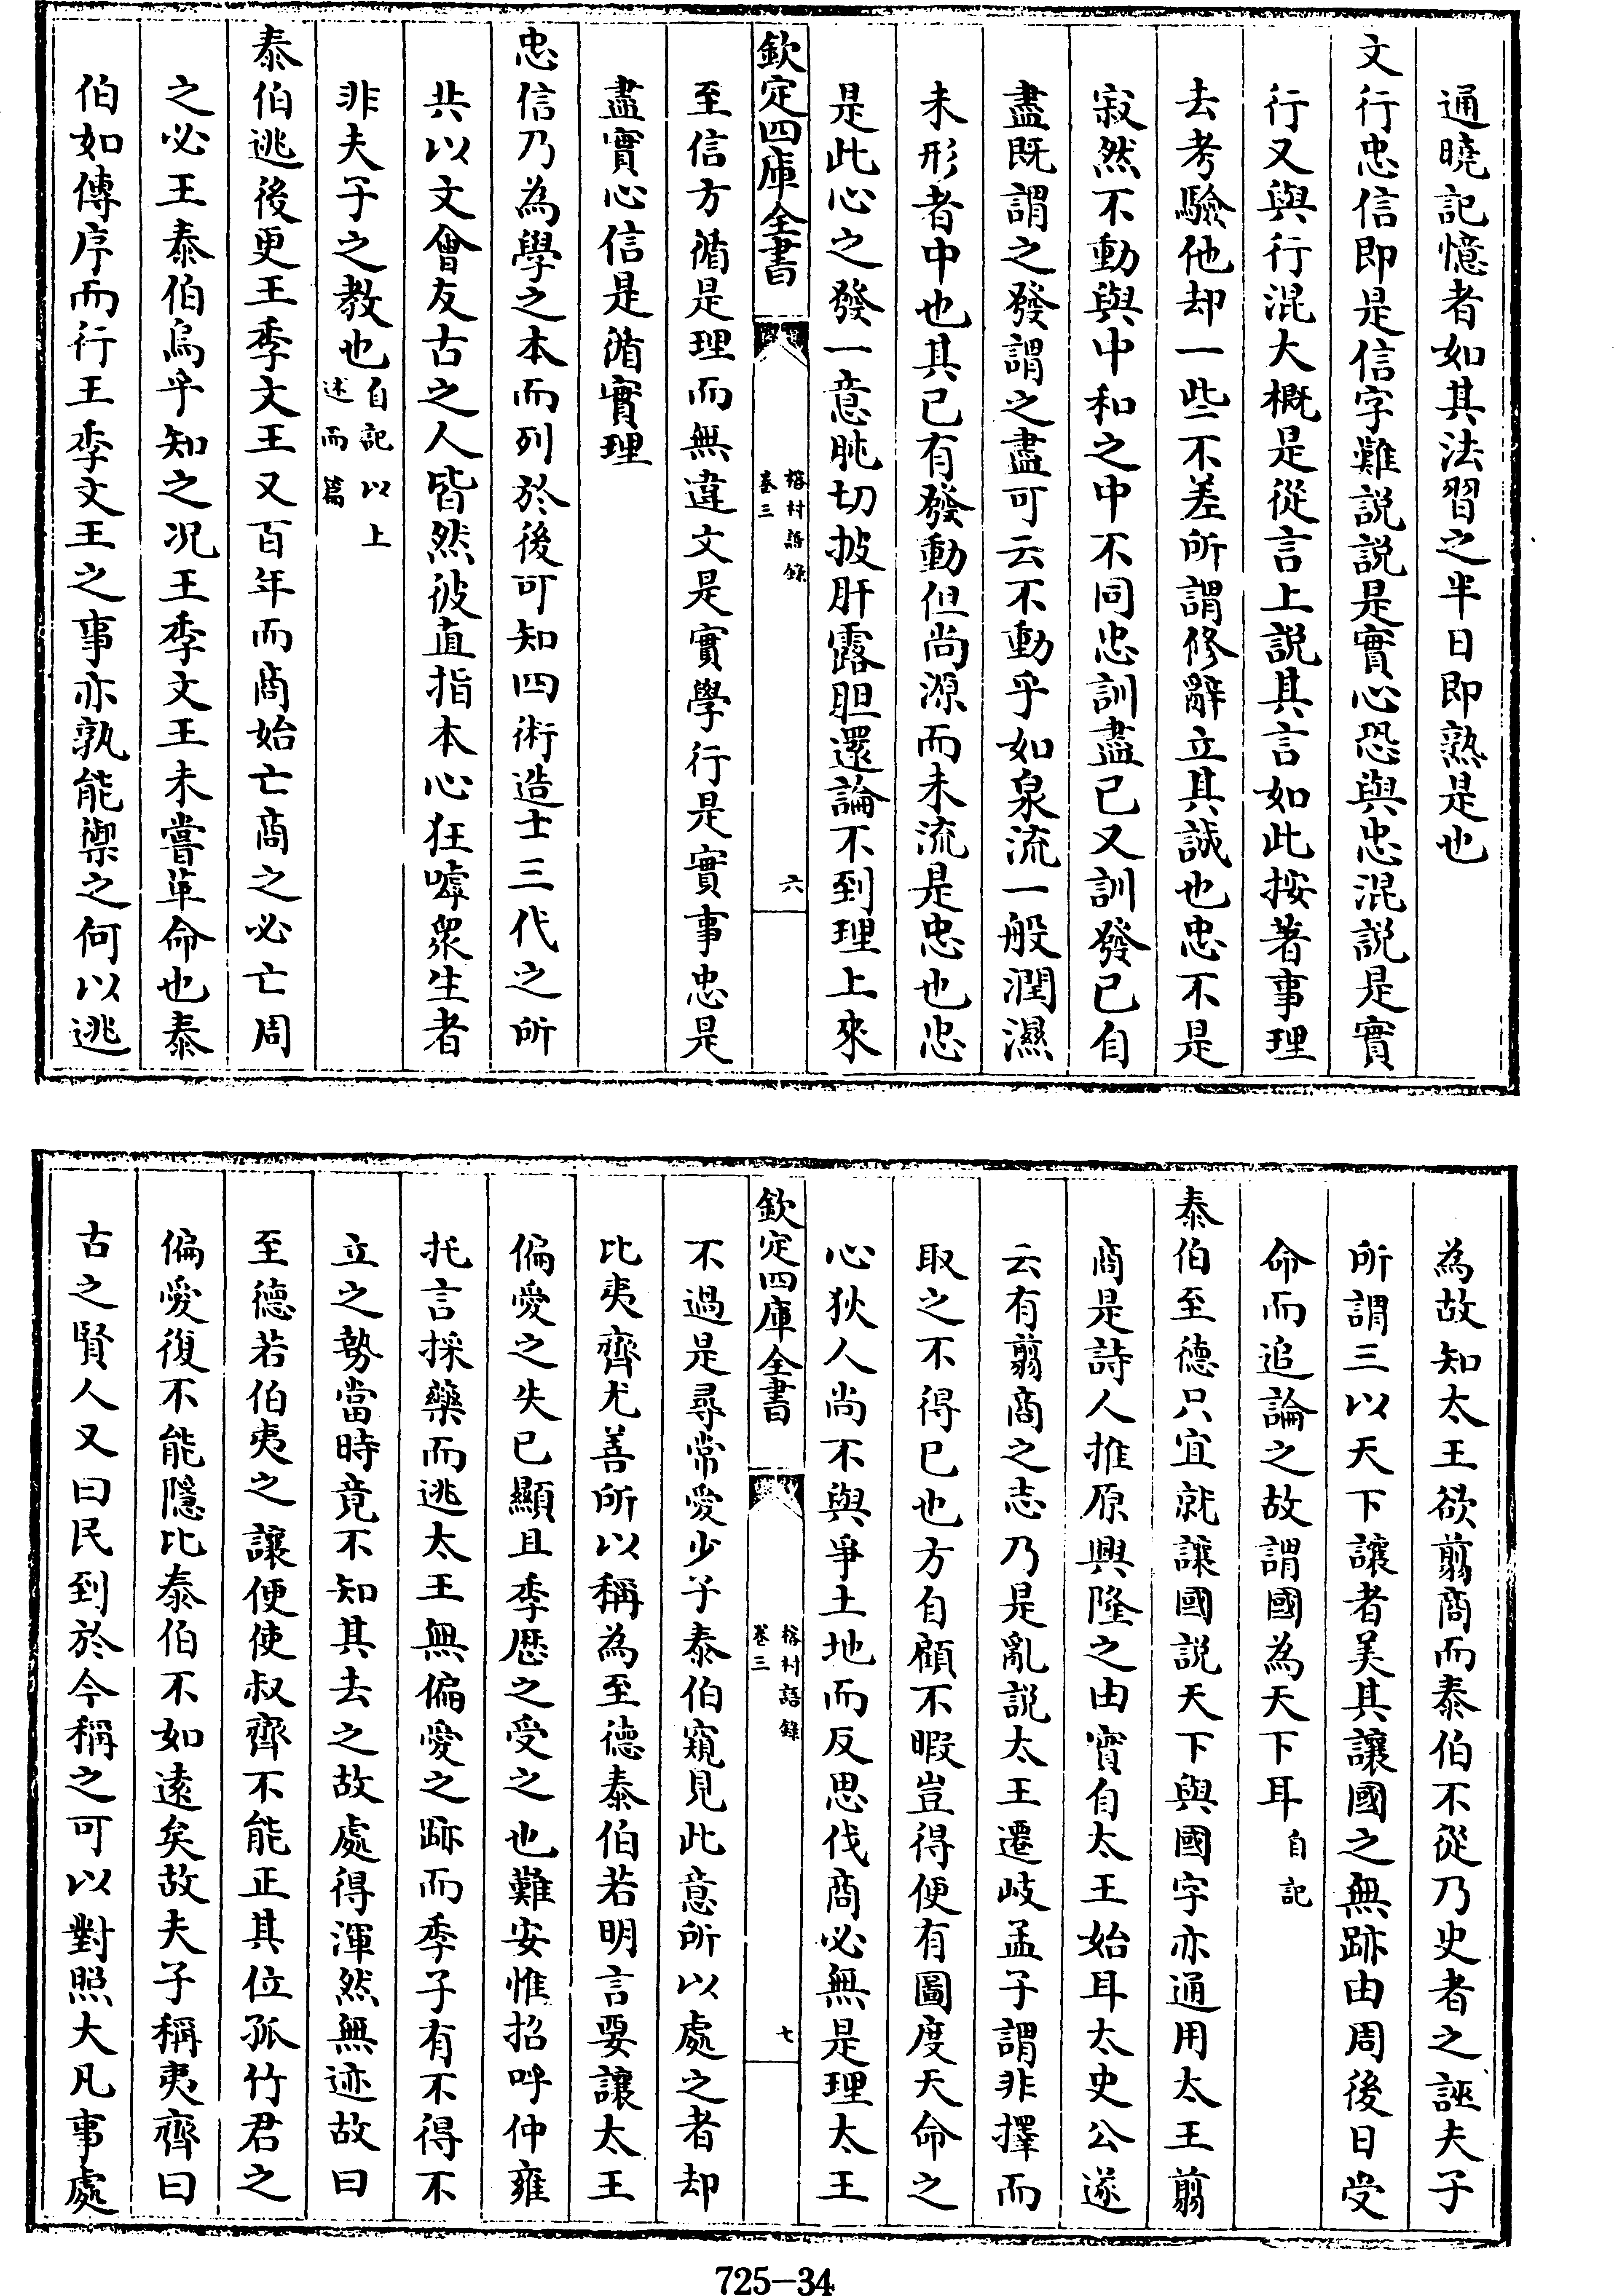 通曉記憶者如其法習之半日即熟是也
文行忠信即是信字難説説是實心恐與忠混説是實
行又與行混大概是從言上説其言如此按著事理
去考驗他却一些不差所謂修辭立其誠也忠不是
寂然不動與中和之中不同忠訓盡已又訓發已自
盡既謂之發謂之盡可云不動乎如泉流一般潤濕
未形者中也其已有發動但尚源而未流是忠也忠
是此心之發一意肫切披肝露胆還論不到理上來
欽定四庫全書
榕村語錄
卷三
六
至信方循是理而無違文是實學行是實事忠是
盡實心信是循實理
忠信乃為學之本而列於後可知四術造士三代之所
共以文會友古之人皆然彼直指本心狂嘑衆生者
非夫子之教也自記以上
述而篇
泰伯逃後更王季文王又百年而商始亡商之必亡周
之必王泰伯烏乎知之况王季文王未嘗革命也泰
伯如傳序而行王季文王之事亦孰能禦之何以逃
為故知太王欲翦商而泰伯不從乃史者之誣夫子
所謂三以天下讓者美其讓國之無跡由周後日受
命而追論之故謂國為天下耳自記
泰伯至德只宜就讓國説天下與國字亦通用太王翦
商是詩人推原興隆之由實自太王始耳太史公遂
云有翦商之志乃是亂説太王遷岐孟子謂非擇而
取之不得已也方自顧不暇豈得便有圖度天命之
心狄人尚不與爭土地而反思伐商必無是理太王
欽定四庫全書
榕村語錄
卷三
七
不過是尋常愛少子泰伯窺見此意所以處之者却
比夷齊尤善所以稱為至德泰伯若明言要讓太王
偏愛之失已顯且季歷之受之也難安惟招呼仲雍
托言採藥而逃太王無偏愛之跡而季子有不得不
立之勢當時竟不知其去之故處得渾然無迹故曰
至德若伯夷之讓便使叔齊不能正其位孤竹君之
偏愛復不能隱比泰伯不如遠矣故夫子稱夷齊曰
古之賢人又曰民到於今稱之可以對照大凡事處
725-34